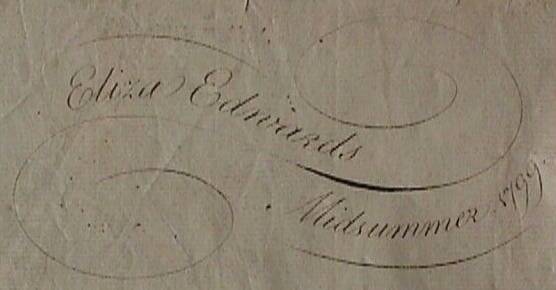 Eliza Edwards
Midsummer 1799.